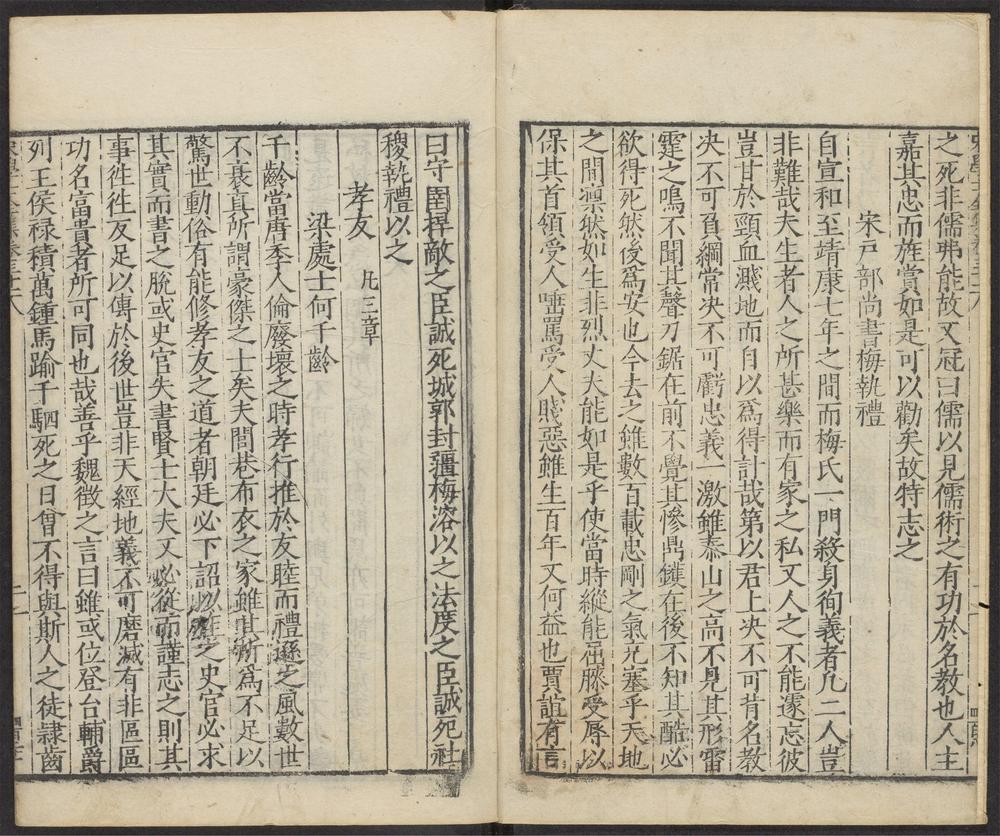 之死非儒弗能故又冠曰儒以見儒術之有功於名教也人主
嘉其忠而旌賞如是可以勸矣故特志之
宋戶部尚書梅執禮
自宣和至靖康七年之間而梅氏一門殺身徇義者凡二人豈
非難哉夫生者人之所甚樂而有家之私又人之不能遽忘彼
豈甘於頸血濺地而自以爲得計哉第以君上決不可背名教
決不可負綱常決不可虧忠義一激雖泰山之高不見其形雷
霆之鳴不聞其聲刀鋸在前不覺其慘鼎鑊在後不知其酷必
欲得死然後爲安也今去之雖數百載忠剛之氣充塞乎天地
之間凛然如生非烈丈夫能如是乎使當時縱能屈膝受辱以
保其首領受人唾罵受人賤惡雖生百年又何益也賈誼有言
曰守圉捍敵之臣誠死城郭封疆梅溶以之法度之臣誠死社
稷執禮以之
孝友 凡三章
梁處士何千齡
千齡當唐季人倫廢壞之時孝行推於友睦而禮遜之風數世
不衰真所謂豪傑之士矣夫閭巷布衣之家雖其所爲不足以
驚世動俗有能修孝友之道者朝廷必下詔以旌之史官必求
其實而書之脫或史官失書賢士大夫又必從而謹志之則其
事徃徃反足以傳於後世豈非天經地義不可磨滅有非區區
功名富貴者所可同也哉善乎魏徵之言曰雖或位登台輔爵
列王侯禄積萬鍾馬踰千駟死之日曾不得與斯人之徒隷齒